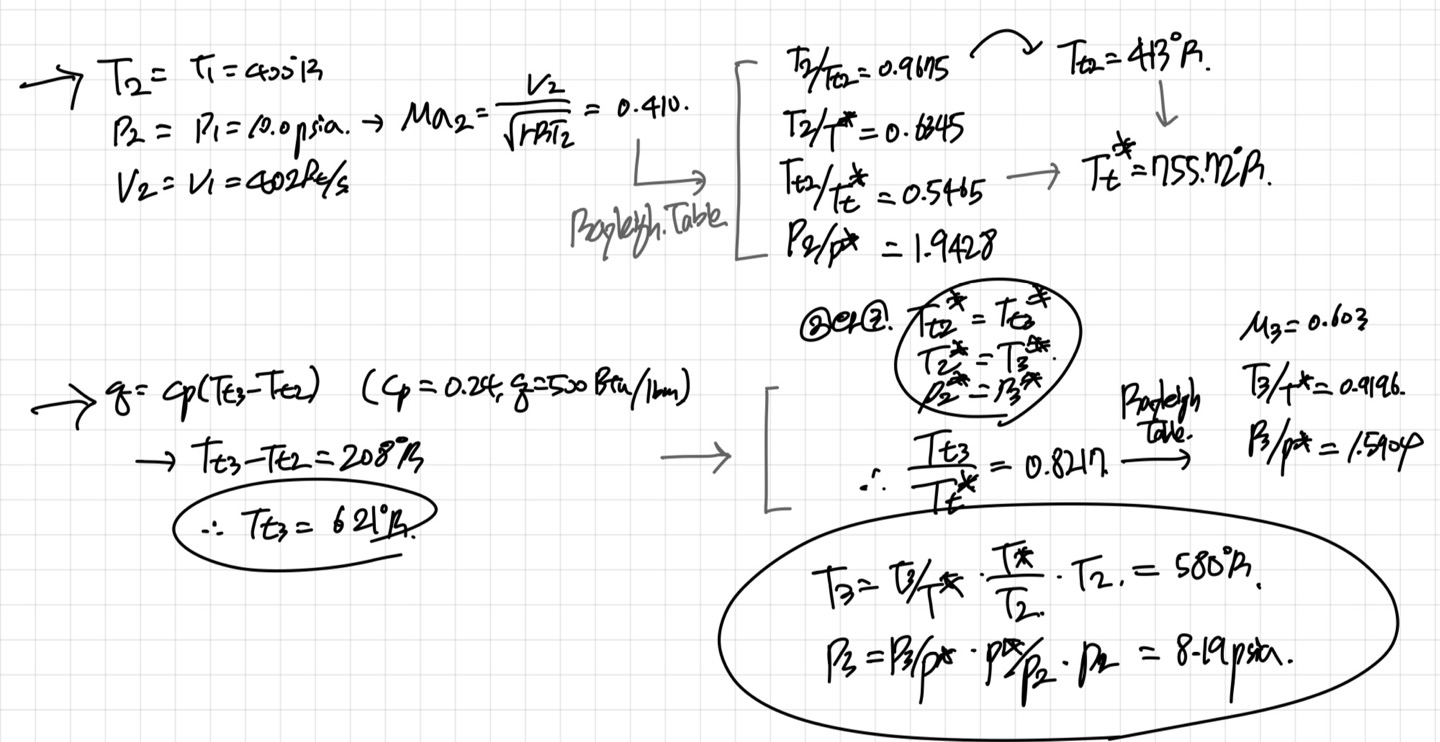 → T2 = T1 = 400°R
P2 = P1 = 10.0 psia. → Ma2 = V2/√(γRT2) = 0.410.
V2 = V1 = 402 ft/s
Rayleigh. Table
T2/Tt2 = 0.9675 → Tt2 = 413°R.
T2/T* = 0.6345
Tt2/Tt* = 0.5465 → Tt* = 755.72°R.
P2/P* = 1.9428
Tt2* = Tt3*
T2* = T3*.
P2* = P3*
→ q = cp(Tt3-Tt2) (cp = 0.24, q=500 Btu/lbm)
→ Tt3-Tt2 = 208°R
∴ Tt3 = 621°R.
→ ∴ Tt3/Tt* = 0.8217 → Rayleigh Table.
M3 = 0.603
T3/T* = 0.9196.
P3/P* = 1.5904
T3 = T3/T* · T*/T2 · T2. = 580°R.
P3 = P3/P* · P*/P2 · P2 = 8.19 psia.